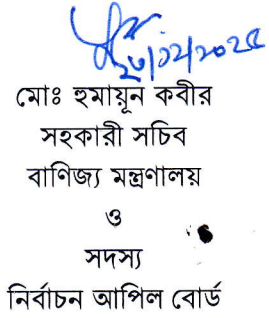 ২৩/১২/২০২৫
মোঃ হুমায়ূন কবীর
সহকারী সচিব
বাণিজ্য মন্ত্রণালয়
ও
সদস্য
নির্বাচন আপিল বোর্ড